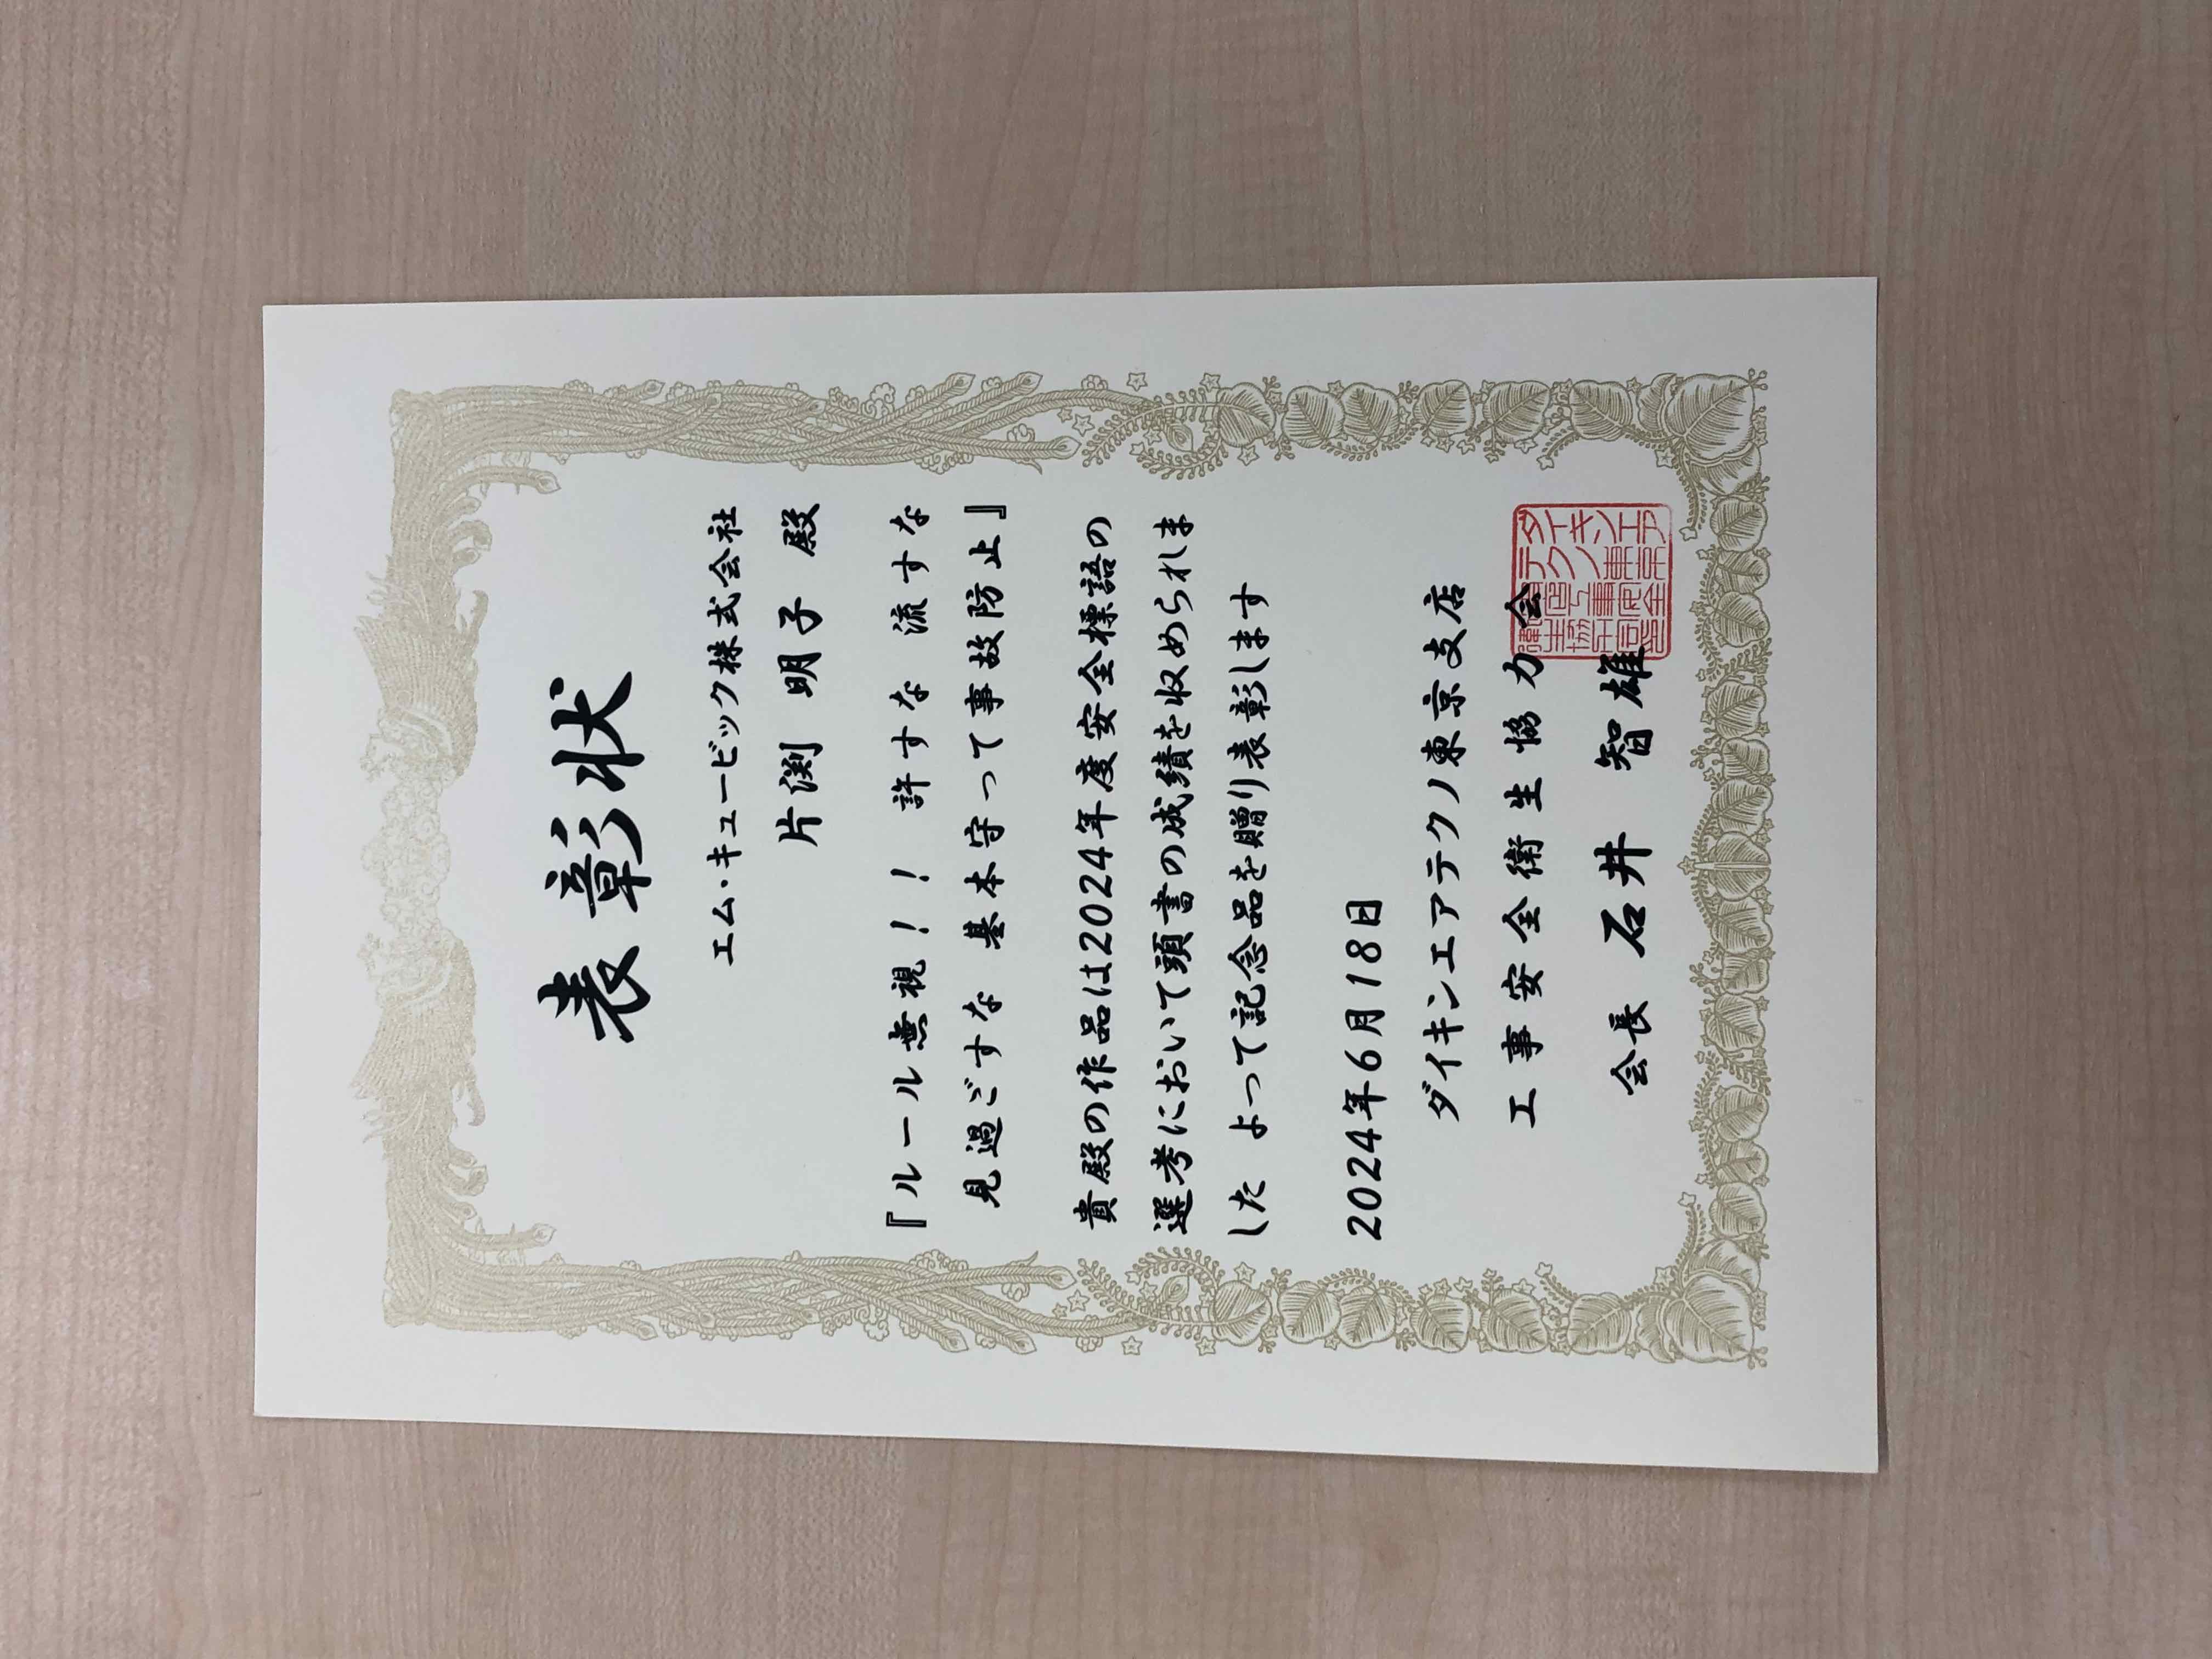 表彰状
エム・キュービック株式会社
片渕 明子 殿
『ルール無視！！ 許すな 流すな
見過ごすな 基本守って事故防止』
貴殿の作品は2024年度安全標語の
選考において頭書の成績を収められま
した よって記念品を贈り表彰します
2024年6月18日
ダイキンエアテクノ東京支店
工事安全衛生協力会
会長 石井 智雄